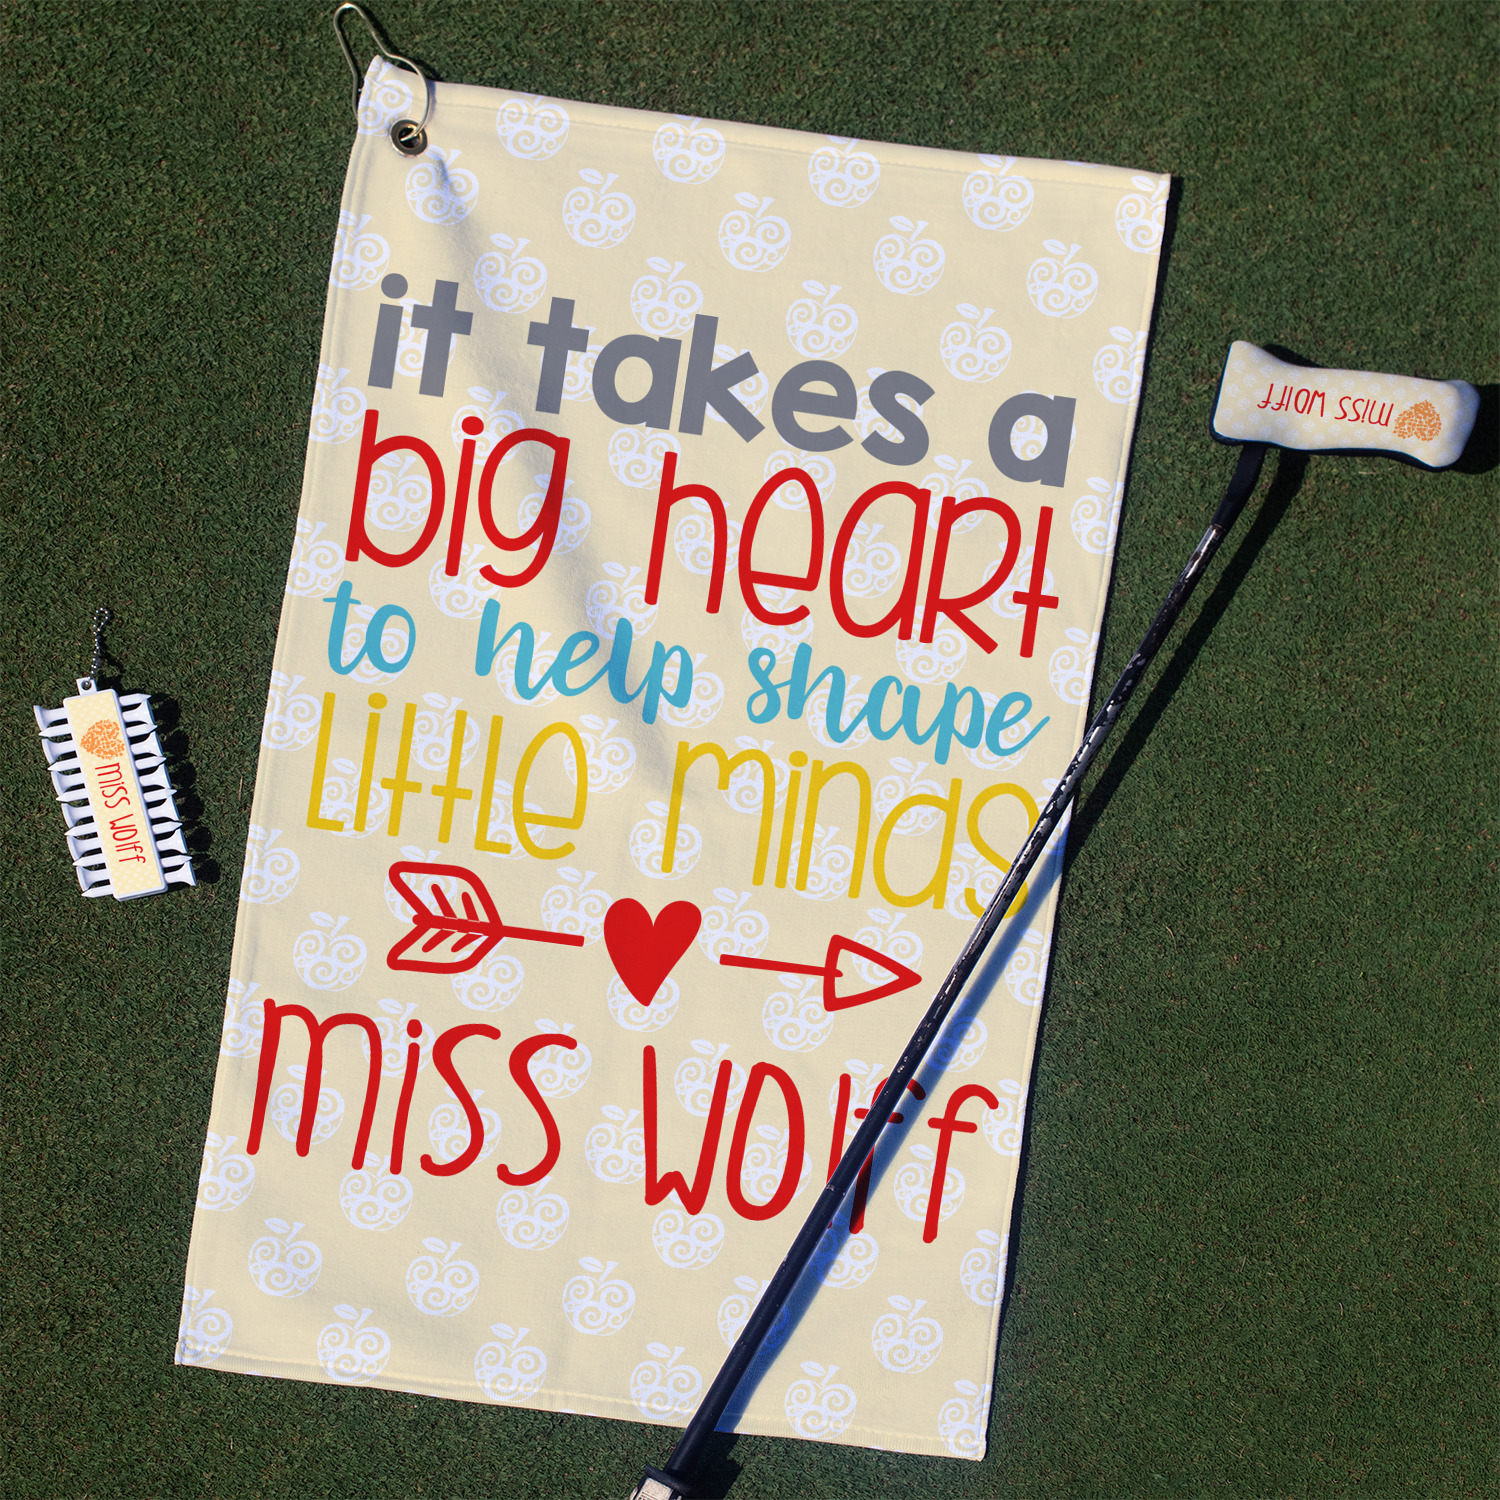 it takes a
big heart
to help shape
little minds
miss wolff
miss wolff
miss wolff